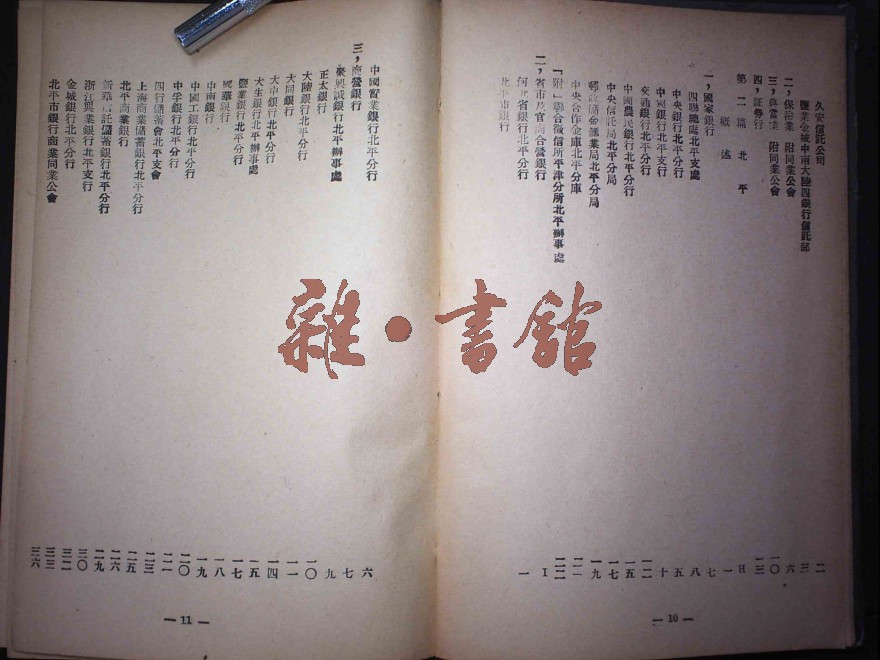 久安信託公司 二
鹽業金城中南大陸四銀行信託部 三
二，保險業 附同業公會 六
三，典當業 附同業公會 一〇
四，証券行 一三
第二篇 北平 日
概述 一
一，國家銀行 七
四聯總處北平支處 八
中央銀行北平分行 五
中國銀行北平支行 十
交通銀行北平分行 一二
中國農民銀行北平分行 一五
中央信託局北平分局 一七
郵政儲金匯業局北平分局 一九
中央合作金庫北平分庫 二一
「附」聯合徵信所平津分所北平辦事處 二二
二，省市及官商合營銀行 I
河北省銀行北平分行 一
北平市銀行
— 10 —
中國實業銀行北平分行 六
三，商營銀行
聚興誠銀行北平辦事處 七
正太銀行 九
大陸銀行北平分行 一〇
大同銀行 一一
大中銀行北平分行 一四
大生銀行北平辦事處 一五
鹽業銀行北平分行 一七
國華銀行 一八
中南銀行 一九
中國工礦銀行北平分行 二〇
中孚銀行北平分行 二一
四行儲蓄會北平支會 二三
上海商業儲蓄銀行北平分行 二五
北平商業銀行 二六
新華信託儲蓄銀行北平分行 二九
浙江興業銀行北平支行 三〇
金城銀行北平分行 三二
北平市銀行商業同業公會 三三
三六
— 11 —
雜·書館